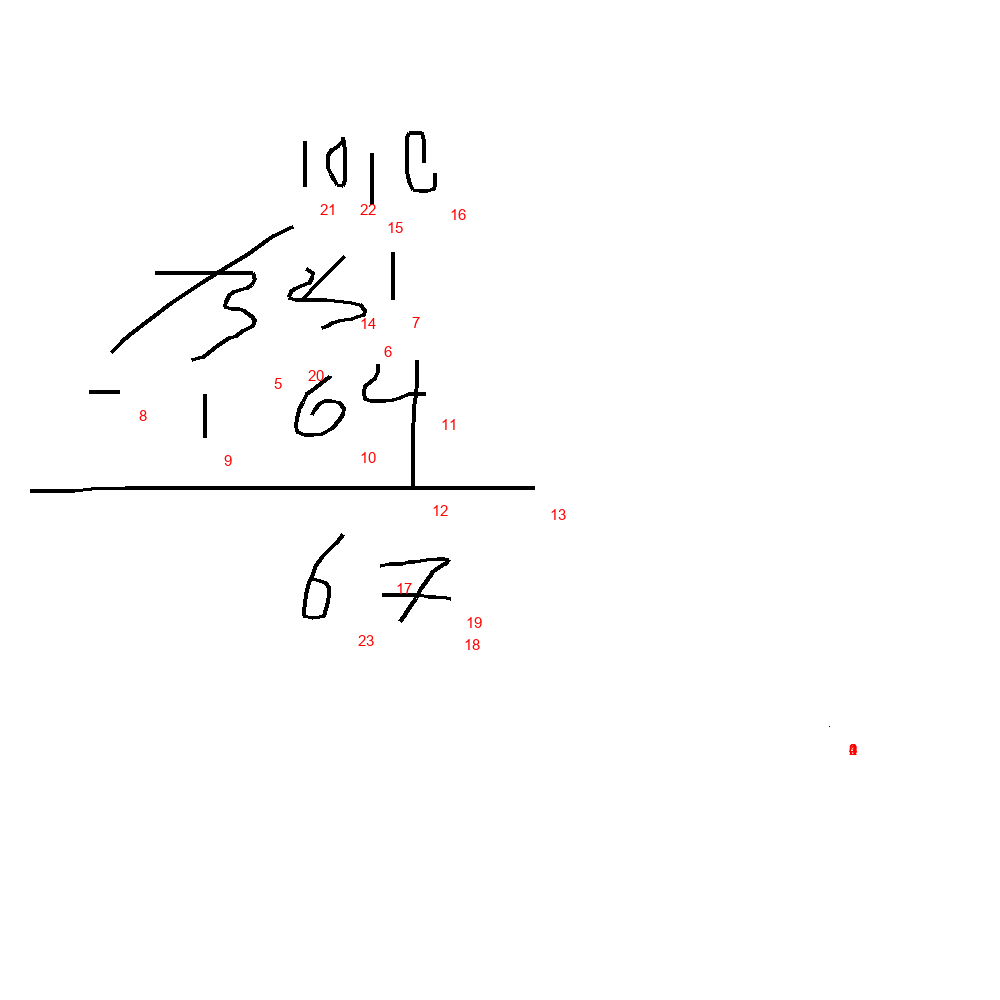 10 10
21 22 16
15
331
14 7
6
5 20
- 164
8 11
9 10
12 13
67
17
19
23 18